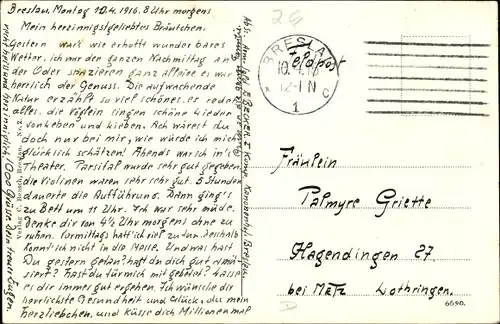 Breslau, Montag 10.4.1916. 8 Uhr morgens
Mein herzinnigstgeliebtes Bräutchen.
Gestern war wie erhofft wunderbares
Wetter, ich war den ganzen Nachmittag an
der Oder spazieren ganz alleine es war
herrlich der Genuss. Die aufwachende
Natur erzählt so viel schönes, er redet
alles, die Vöglein singen schöne Lieder
von Leben und Lieben. Ach wärest du
doch nur bei mir, wie würde ich mich
glücklich schätzen! Abends war ich in's
Theater. Parsifal wurde sehr gut gegeben
die Violinen waren sehr sehr gut. 5 Stunden
dauerte die Aufführung. Dann ging's
zu Bett um 11 Uhr. Ich war sehr müde.
Denke dir von 4½ Uhr morgens ohne zu
ruhen. Vormittags hatt ich viel zu tun. Deshalb
konnt ich nicht in die Messe. Und was hast
Du gestern getan? hast du dich gut amü-
siert? hast du für mich mit gebetet? Lasse
es dir immer gut ergehen. Ich wünsche dir
herrlichste Gesundheit und Glück, du mein
herzliebchen, und küsse dich Millionen mal
1000 Grüsse dein treuer Eugen.
Verlag C. Brosch, Breslau. Nr. 2.
Abs.
BECKER I Komp.
Breslau
Feldpost
BRESLAU
10.4.16
12-1 N
* C
1
Fräulein
Palmyre Griette
Hagendingen 27.
bei Metz Lothringen.
6690.